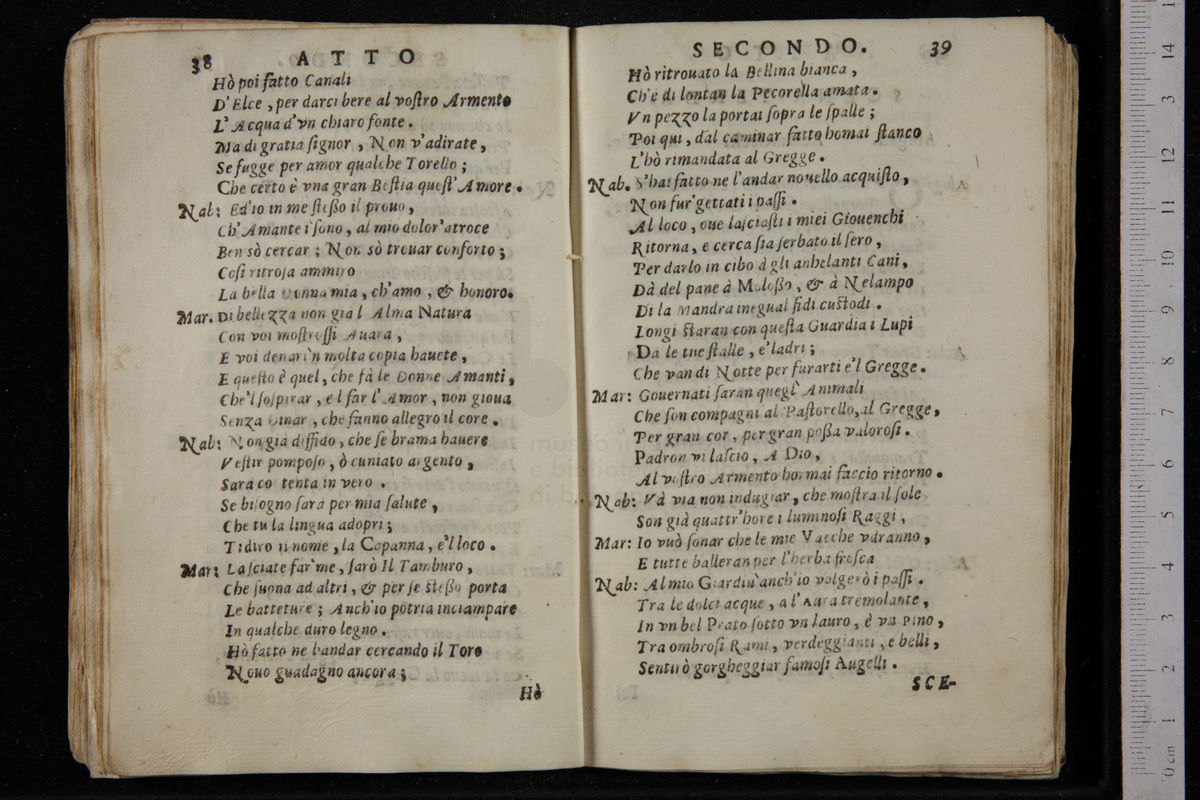 38 ATTO
Hò poi fatto Canali
D'Elce, per darci bere al voſtro Armento
L'Acqua d'vn chiaro fonte.
Ma di gratia ſignor, Non v'adirate,
Se fugge per amor qualche Torello;
Che certo è vna gran Beſtia queſt'Amore.
Nab: Ed'io in me ſteßo il prouo,
Ch'Amante i ſono, al mio dolor'atroce
Ben sò cercar; Non sò trouar conforto;
Coſi ritroſa ammiro
La bella Donna mia, ch'amo, & honoro.
Mar. Di bellezza non gia l Alma Natura
Con voi moſtroſſi Auara,
E voi denari'n molta copia hauete,
E queſto è quel, che fà le Donne Amanti,
Che'l ſoſpirar, e l far l'Amor, non gioua
Senza Dinar, che fanno allegro il core.
Nab: Non già diffido, che ſe brama hauere
Veſtir pompoſo, ò cuniato argento,
Sarà co tenta in vero.
Se biſogno ſarà per mia ſalute,
Che tu la lingua adopri;
Ti diro il nome, la Capanna, e'l loco.
Mar: Laſciate far'me, ſarò Il Tamburo,
Che ſuona ad altri, & per ſe ſteßo porta
Le batteture; Anch'io potria inciampare
In qualche duro legno.
Hò fatto ne l'andar cercando il Toro
Nouo guadagno ancora;
Hò
SECONDO. 39
Hò ritrouato la Bellina bianca,
Ch'è di lontan la Pecorella amata.
Vn pezzo la portai ſopra le ſpalle;
Poi qui, dal caminar fatto homai ſtanco
L'hò rimandata al Gregge.
Nab. S'hai fatto ne l'andar nouello acquiſto,
Non fur'gettati i paſſi.
Al loco, oue laſciaſti i miei Giouenchi
Ritorna, e cerca ſia ſerbato il ſero,
Per darlo in cibo à gli anhelanti Cani,
Dà del pane à Moloßo, & à Nelampo
Di la Mandra inegual fidi cuſtodi.
Longi ſtaran con queſta Guardia i Lupi
Da le tue ſtalle, e'ladri;
Che van di Notte per furarti e'l Gregge.
Mar: Gouernati ſaran quegl'Animali
Che ſon compagni al Paſtorello, al Gregge,
Per gran cor, per gran poßa valoroſi.
Padron vi laſcio, A Dio,
Al voſtro Armento hormai faccio ritorno.
Nab: Và via non indugiar, che moſtra il ſole
Son già quattr'hore i luminoſi Raggi,
Mar: Io vuò ſonar che le mie Vacche vdranno,
E tutte balleran per l'herba freſca
Nab: Al mio Giardin'anch'io volgerò i paſſi.
Tra le dolci acque, a l'Aura tremolante,
In vn bel Prato ſotto vn lauro, è vn Pino,
Tra ombroſi Rami, verdeggianti, e belli,
Sentirò gorgheggiar famoſi Augelli.
SCE-